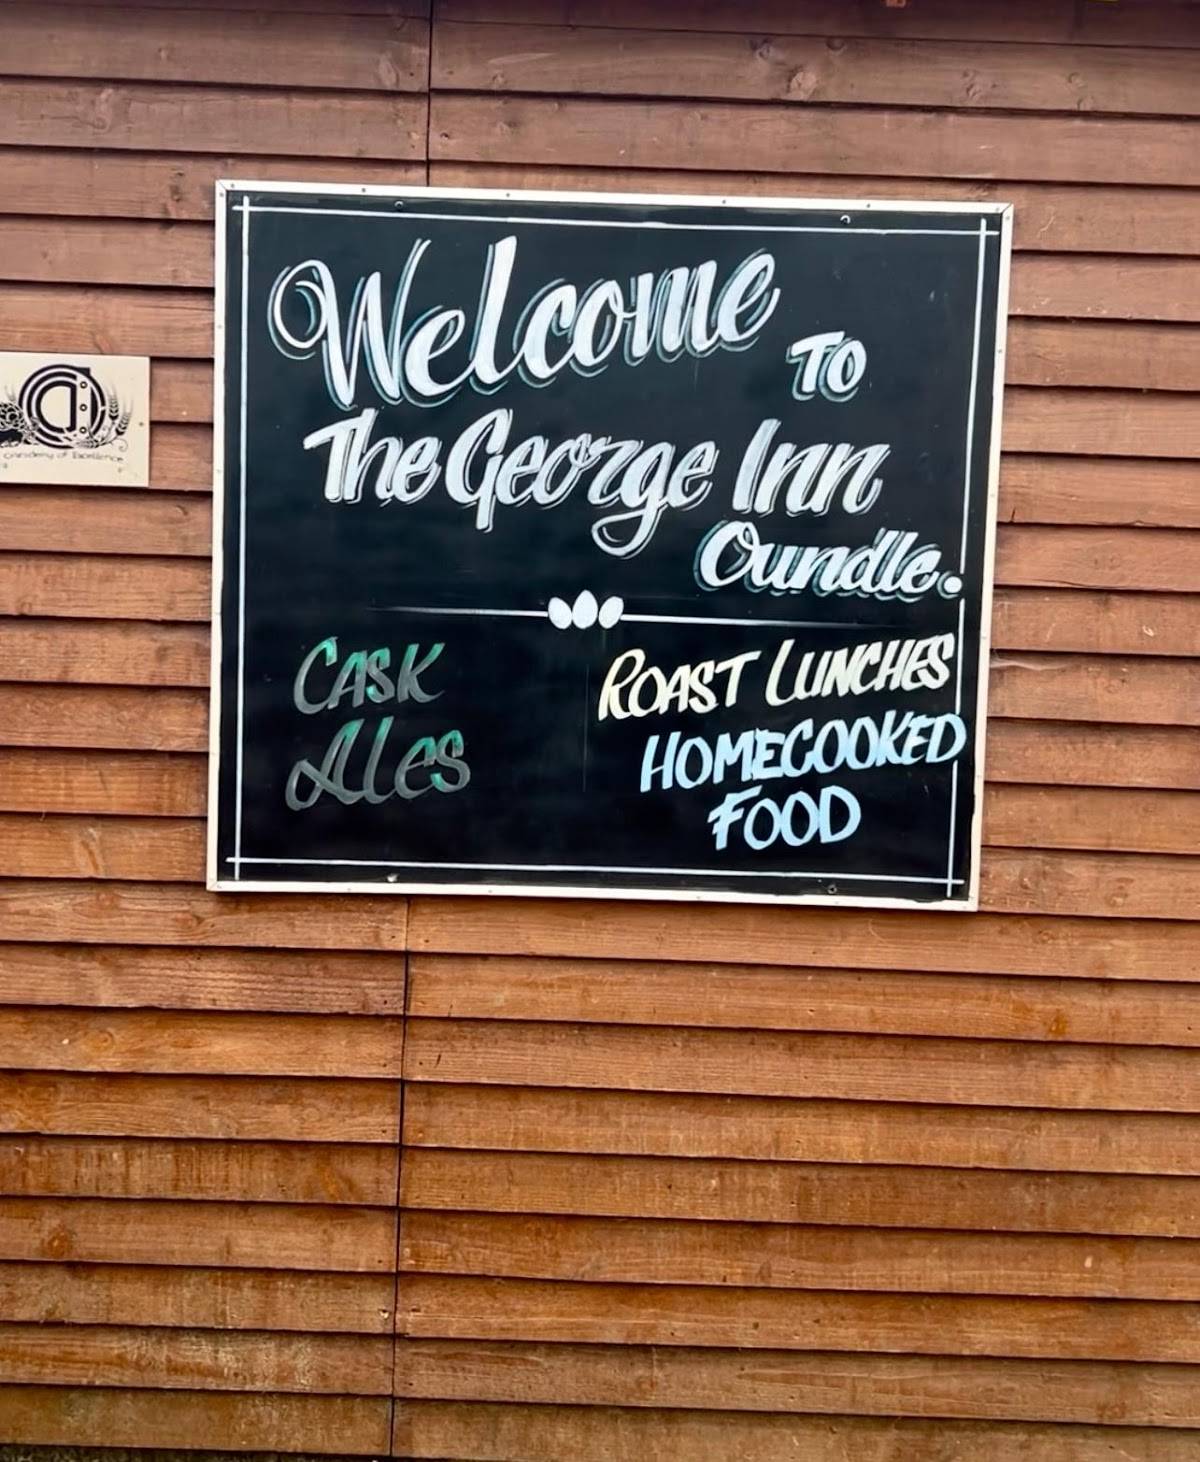 Welcome
To
The George Inn
Oundle.
CASK
ALES
ROAST LUNCHES
HOMECOOKED
FOOD
of Excellence